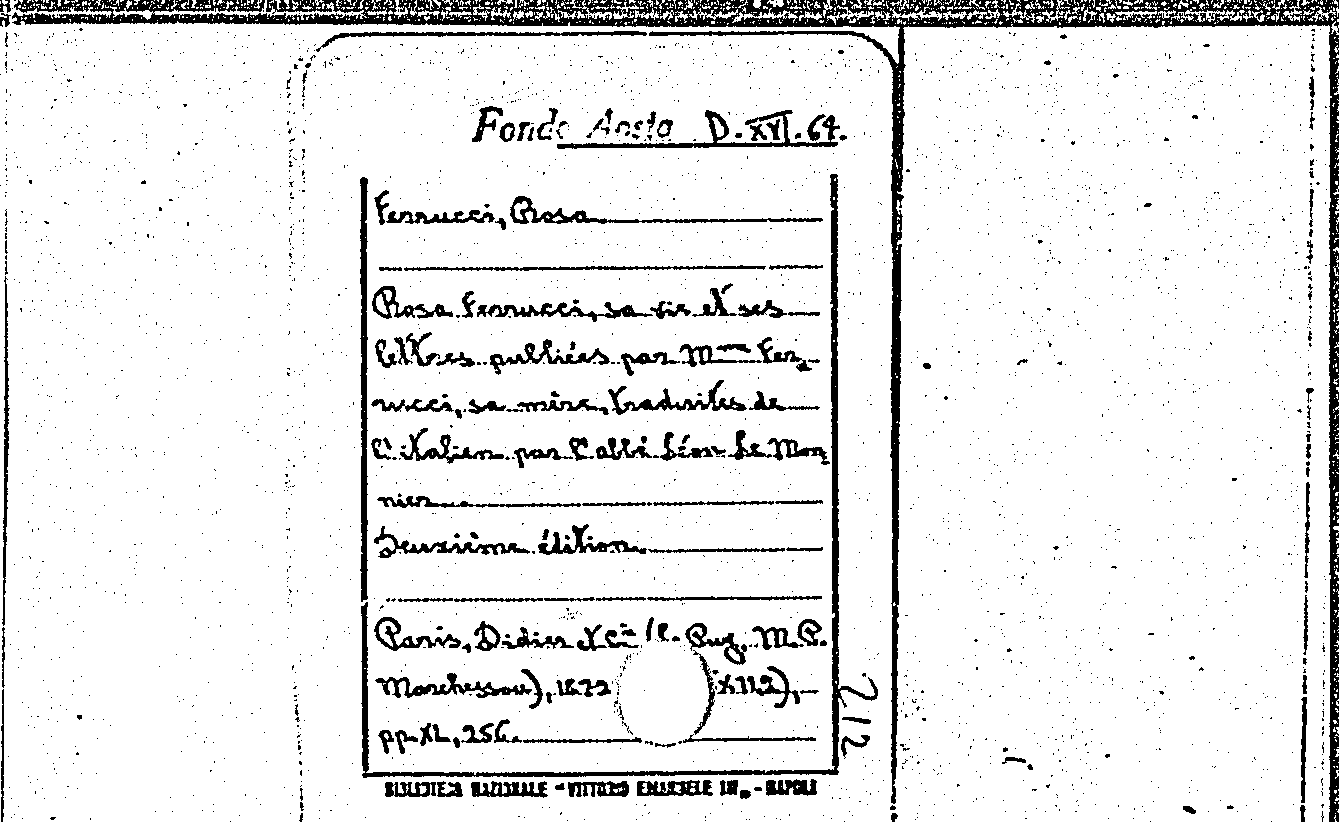 Fondo Aosta D. XVI. 64.
Ferrucci, Rosa
Rosa Ferrucci, sa vie et ses
lettres publiées par Mme Fer-
rucci, sa mère, traduites de
l'italien par l'abbé Léon Le Mon-
nier.
Deuxième édition.
Paris, Didier et Cie (C. Puy, M. P.
Marchessou), 1872 X112),
pp. XL, 256.
212
BIBLIOTECA NAZIONALE - VITTORIO EMANUELE III - NAPOLI